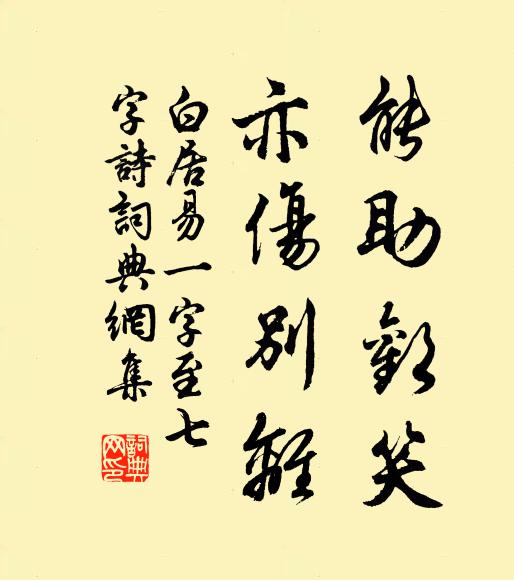 能助歡笑
亦傷別離
白居易一字至七
字詩詞典網集
詞典网印